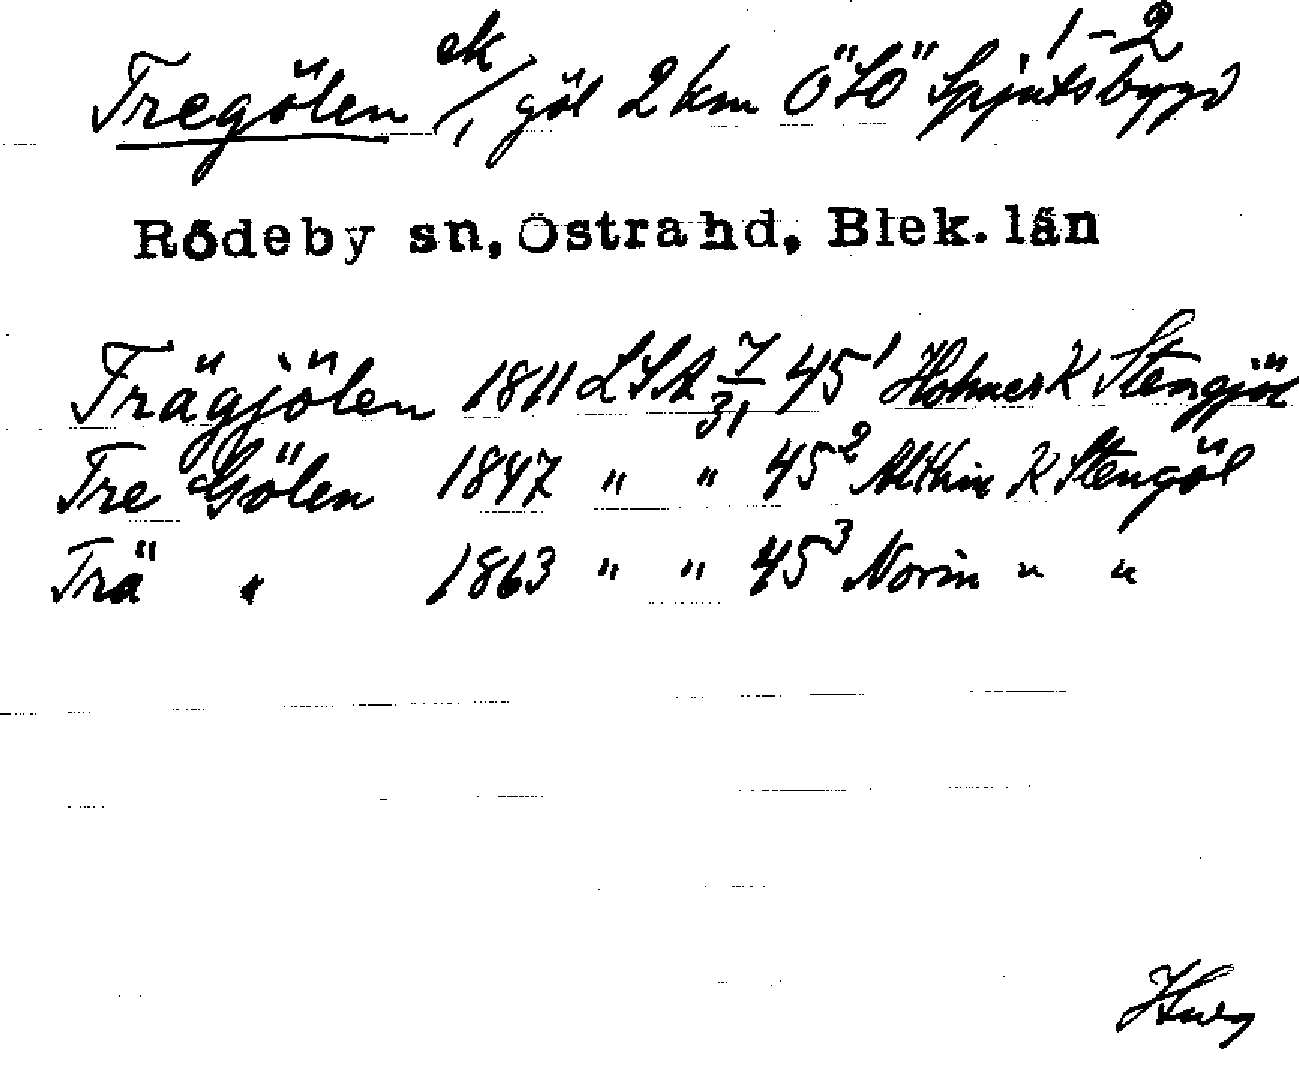 Tregölen ek/, göl 2 km ÖSÖ Spjutsbygd 1-2
Rödeby sn, Östra hd, Blek. län
Trägjölen 1811 LSA 7/31 45¹ Holmer K Stengjöl
Tre Gölen 1847 " " 45² Althin K Stengöl
Trä " 1863 " " 45³ Norin " "